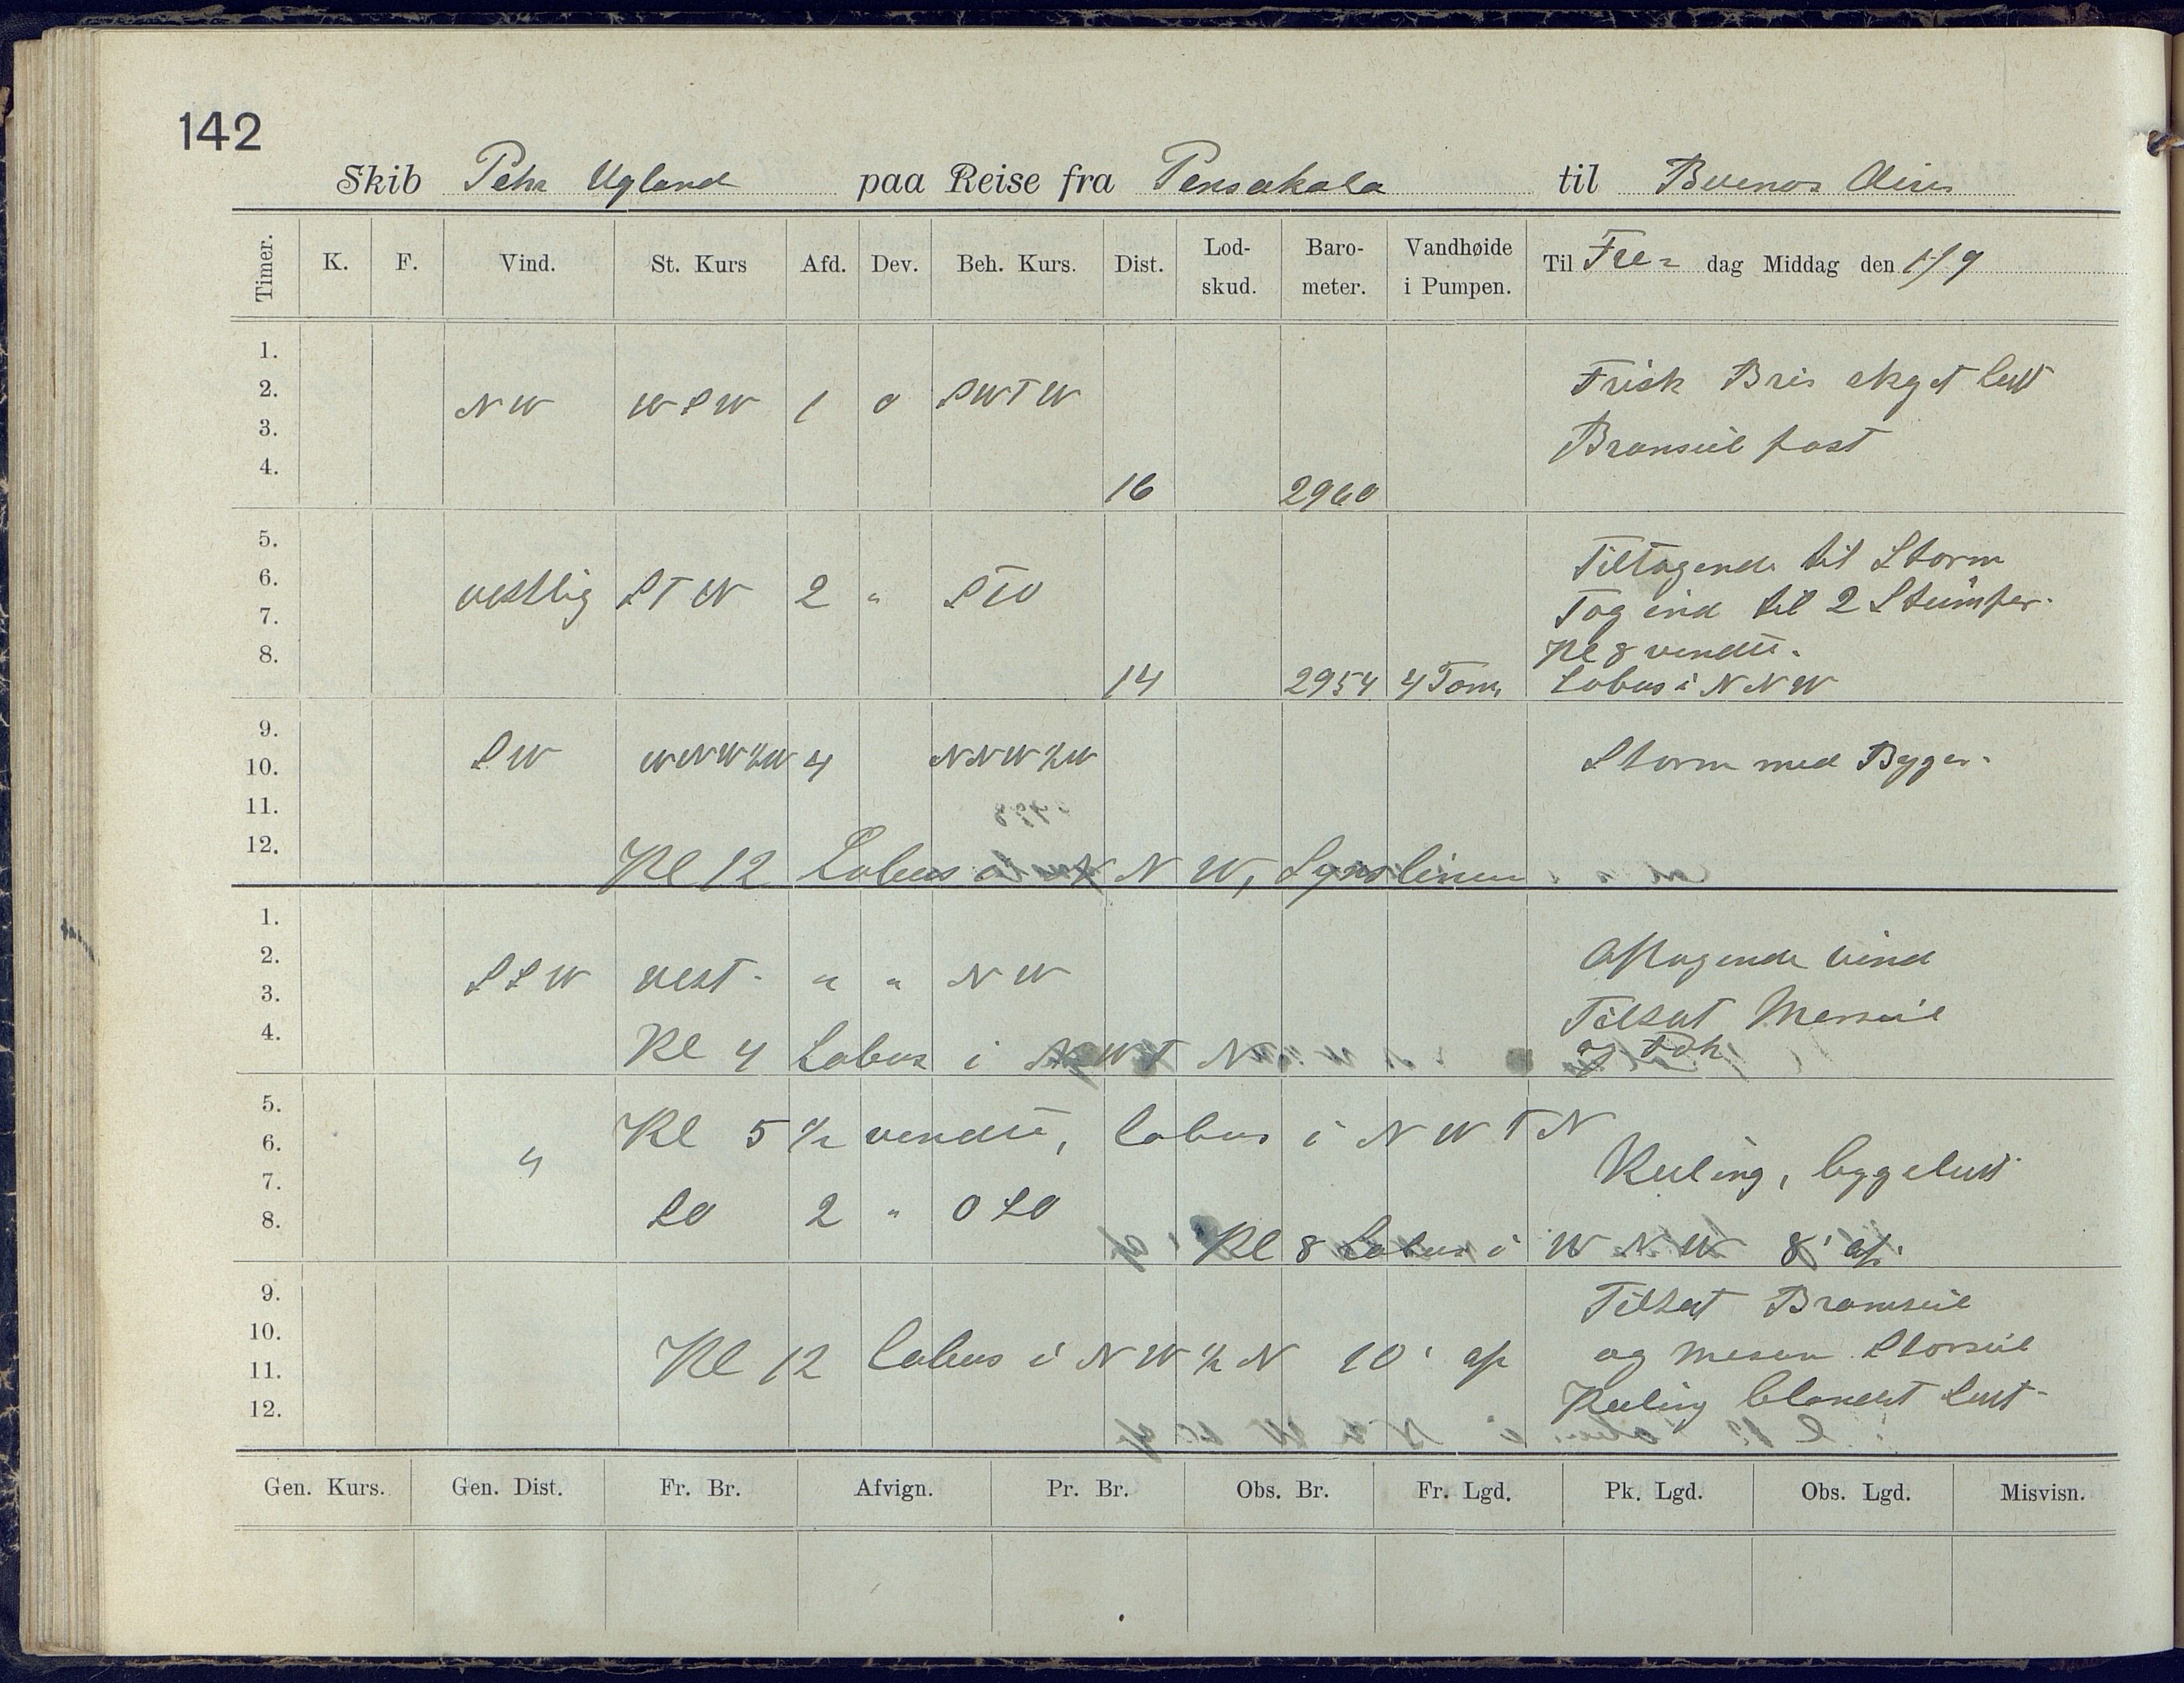 142
Skib Pehr Ugland paa Reise fra Pensakola til Buenos Aires
Timer. K. F. Vind. St. Kurs Afd. Dev. Beh. Kurs. Dist. Lod-skud. Baro-meter. Vandhøide i Pumpen. Til Fre- dag Middag den 1/9
1.
2. NW WSW 1 0 SWTW Frisk Bris skyet luft
3. Bramseil fast
4. 16 2960
5. Tiltagende til Storm
6. vestlig STW 2 " STO Tog ind til 2 Stumper.
7. Kl 8 vendte.
8. 14 2954 4 Tom. Lobus i NNW
9.
10. SW WNW½W 4 NNW½W Storm med Byger.
11.
12. Kl 12 Lobus i NNW, Synslinien
1.
2. SSW vest. " " NW Aftagende vind
3. Tilsat Merseil
4. Kl 4 Lobus i NWTN og Fok
5. Kl 5½ vendte, lobus i NWTN
6. " Kuling, bygeluft
7.
8. SO 2 " OSO Kl 8 Lobus i WNW 8' af.
9. Tilsat Bramseil
10. og mesan Storseil
11. Kl 12 lobus i NW½N 10' af
12. Kuling blandet Luft
Gen. Kurs. Gen. Dist. Fr. Br. Afvign. Pr. Br. Obs. Br. Fr. Lgd. Pk. Lgd. Obs. Lgd. Misvisn.